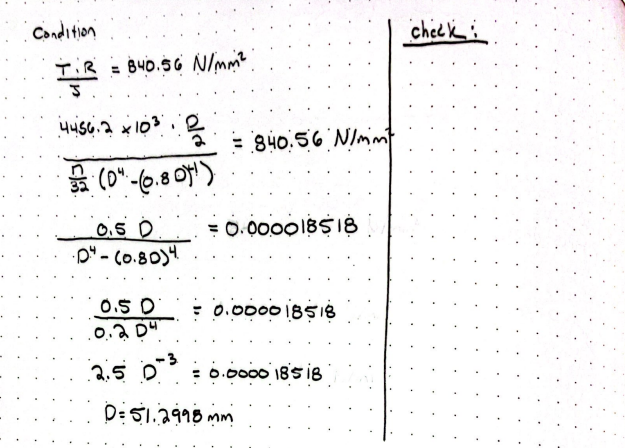 Condition
check :
T.R / J = 840.56 N/mm²
4456.2 x 10³ . D/2 / π/32 (D⁴ - (0.8D)⁴) = 840.56 N/mm²
0.5 D / D⁴ - (0.8D)⁴ = 0.000018518
0.5 D / 0.2 D⁴ = 0.000018518
2.5 D⁻³ = 0.000018518
D = 51.2998 mm